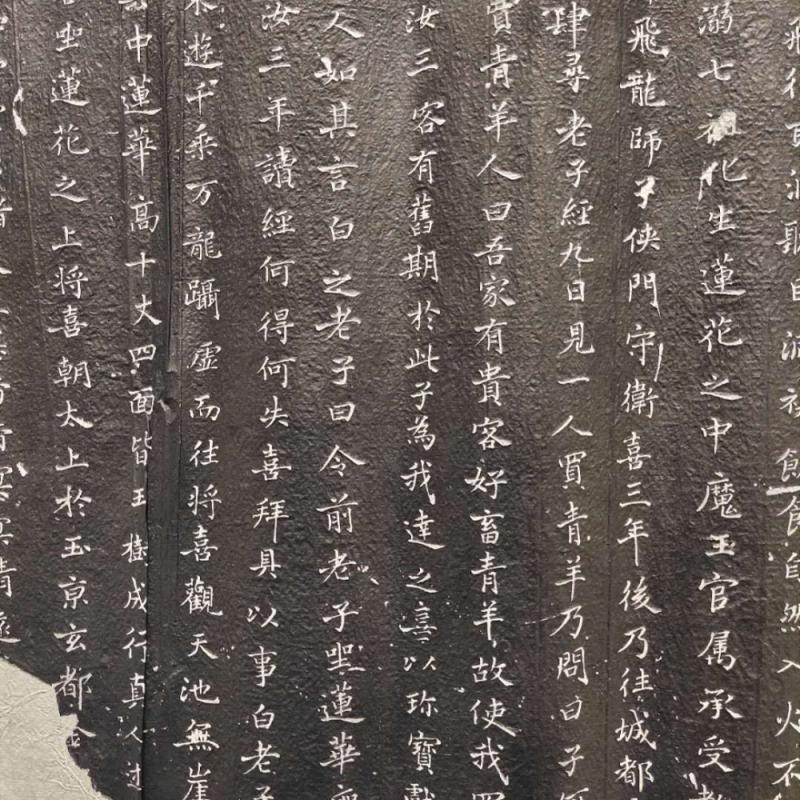 飛行百洞聽由派
餌餔自然入火不
溺七祖化生蓮花之中魔王官属承受
飛龍師子俠門守衛喜三年後乃往城都
肆尋老子經九日見一人買青羊乃問曰子
買青羊人曰吾家有貴客好畜青羊故使我買
汝三客有舊期於此子為我達之喜以珎寶獻
人如其言白之老子曰令前老子坐蓮華
汝三年讀經何得何失喜拜具以事白老子
遊千乘万龍躡虛而往將喜觀天池無崖
中蓮華高十丈四面皆王樹成行真人
坐蓮花之上將喜朝太上於玉京玄都金